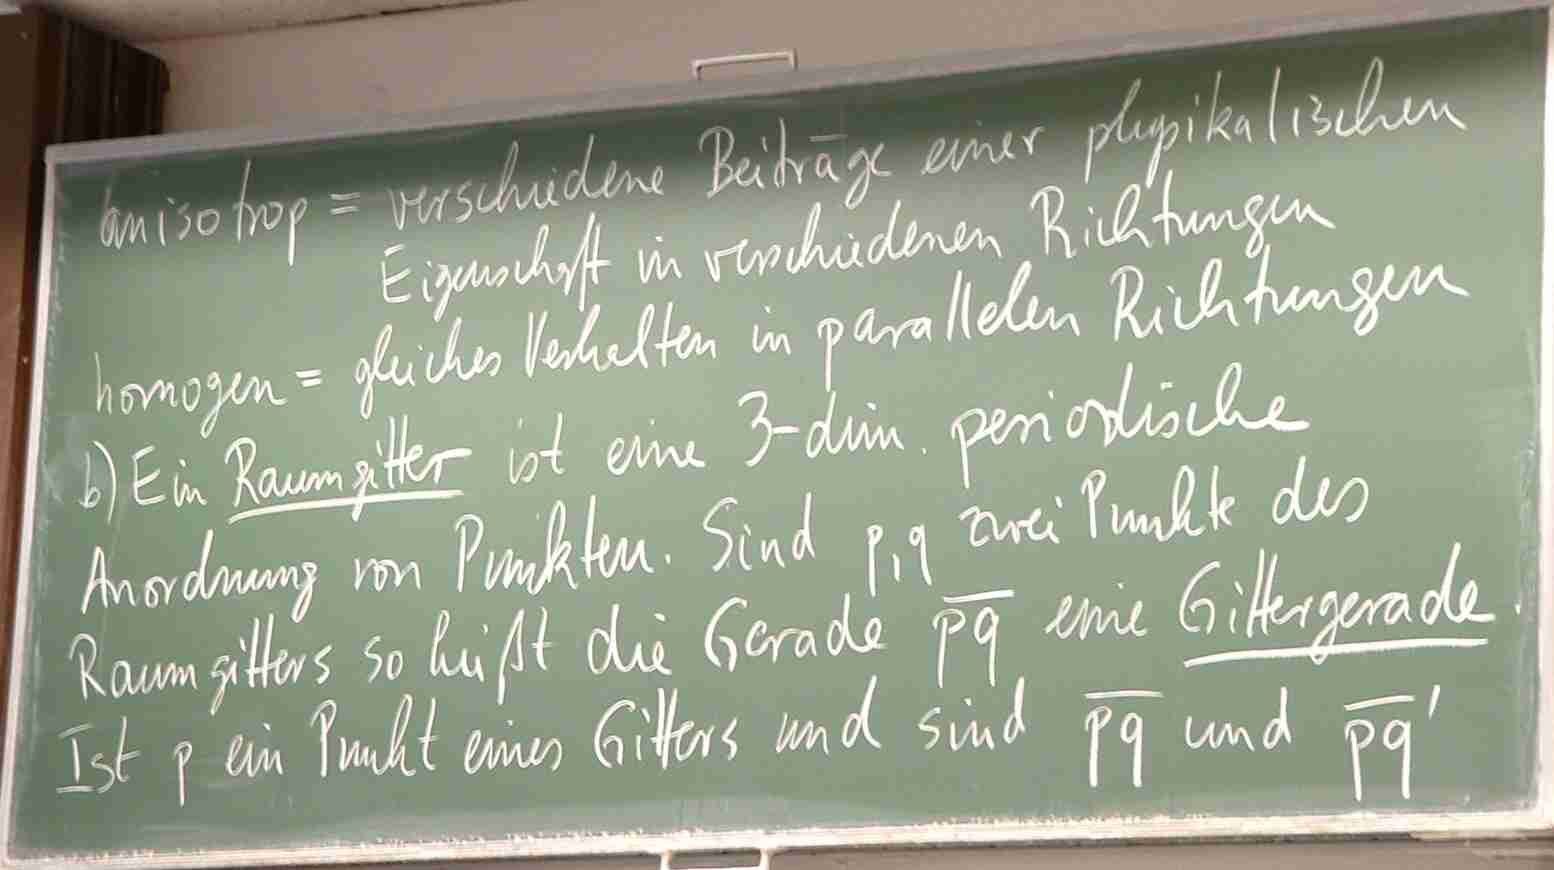 anisotrop = verschiedene Beiträge einer physikalischen
Eigenschaft in verschiedenen Richtungen
homogen = gleiches Verhalten in parallelen Richtungen
b) Ein Raumgitter ist eine 3-dim. periodische
Anordnung von Punkten. Sind p, q zwei Punkte des
Raumgitters so heißt die Gerade p̅q̅ eine Gittergerade.
Ist p ein Punkt eines Gitters und sind p̅q̅ und p̅q̅'